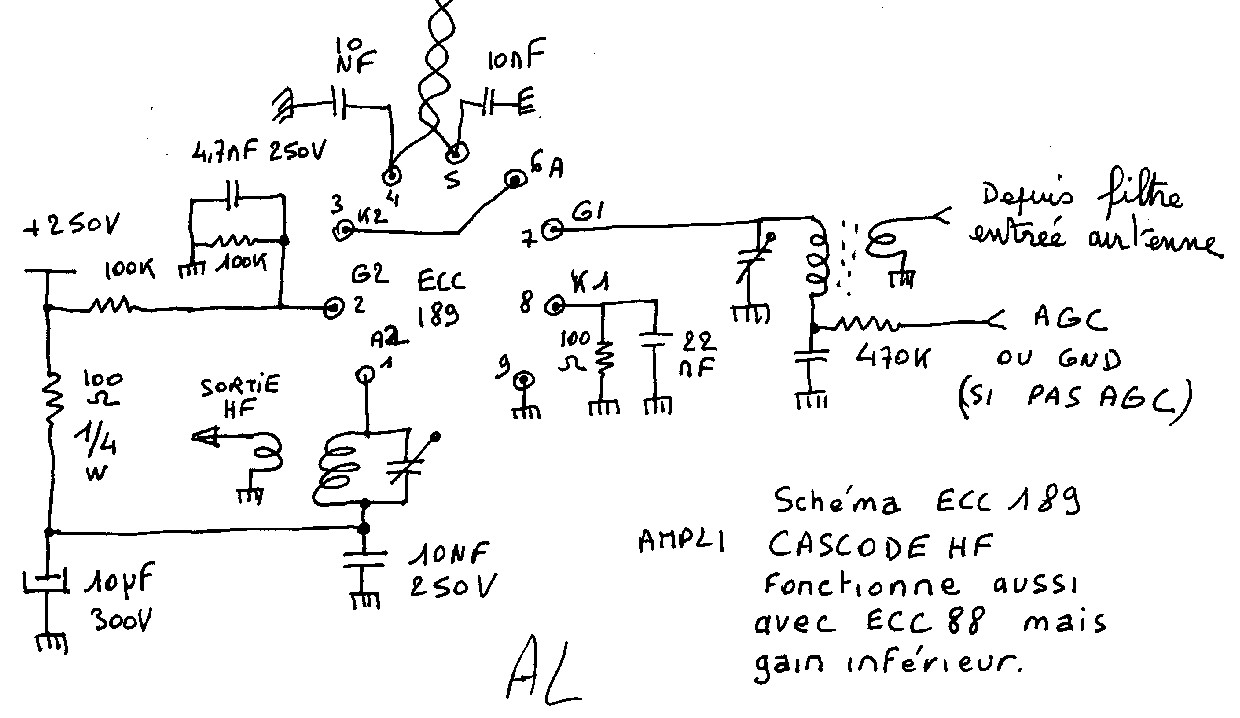 10
NF
10nF
4,7nF 250V
+250V
100K
100K
3
K2
4
5
6 A
7
G1
G2
2
ECC
189
8
K1
A2
1
9
100
Ω
22
nF
Depuis filtre
entrée antenne
AGC
OU GND
(SI PAS AGC)
470K
100
Ω
1/4
W
SORTIE
HF
10NF
250V
10µF
300V
Schéma ECC 189
AMPLI CASCODE HF
Fonctionne aussi
avec ECC 88 mais
gain inférieur.
AL